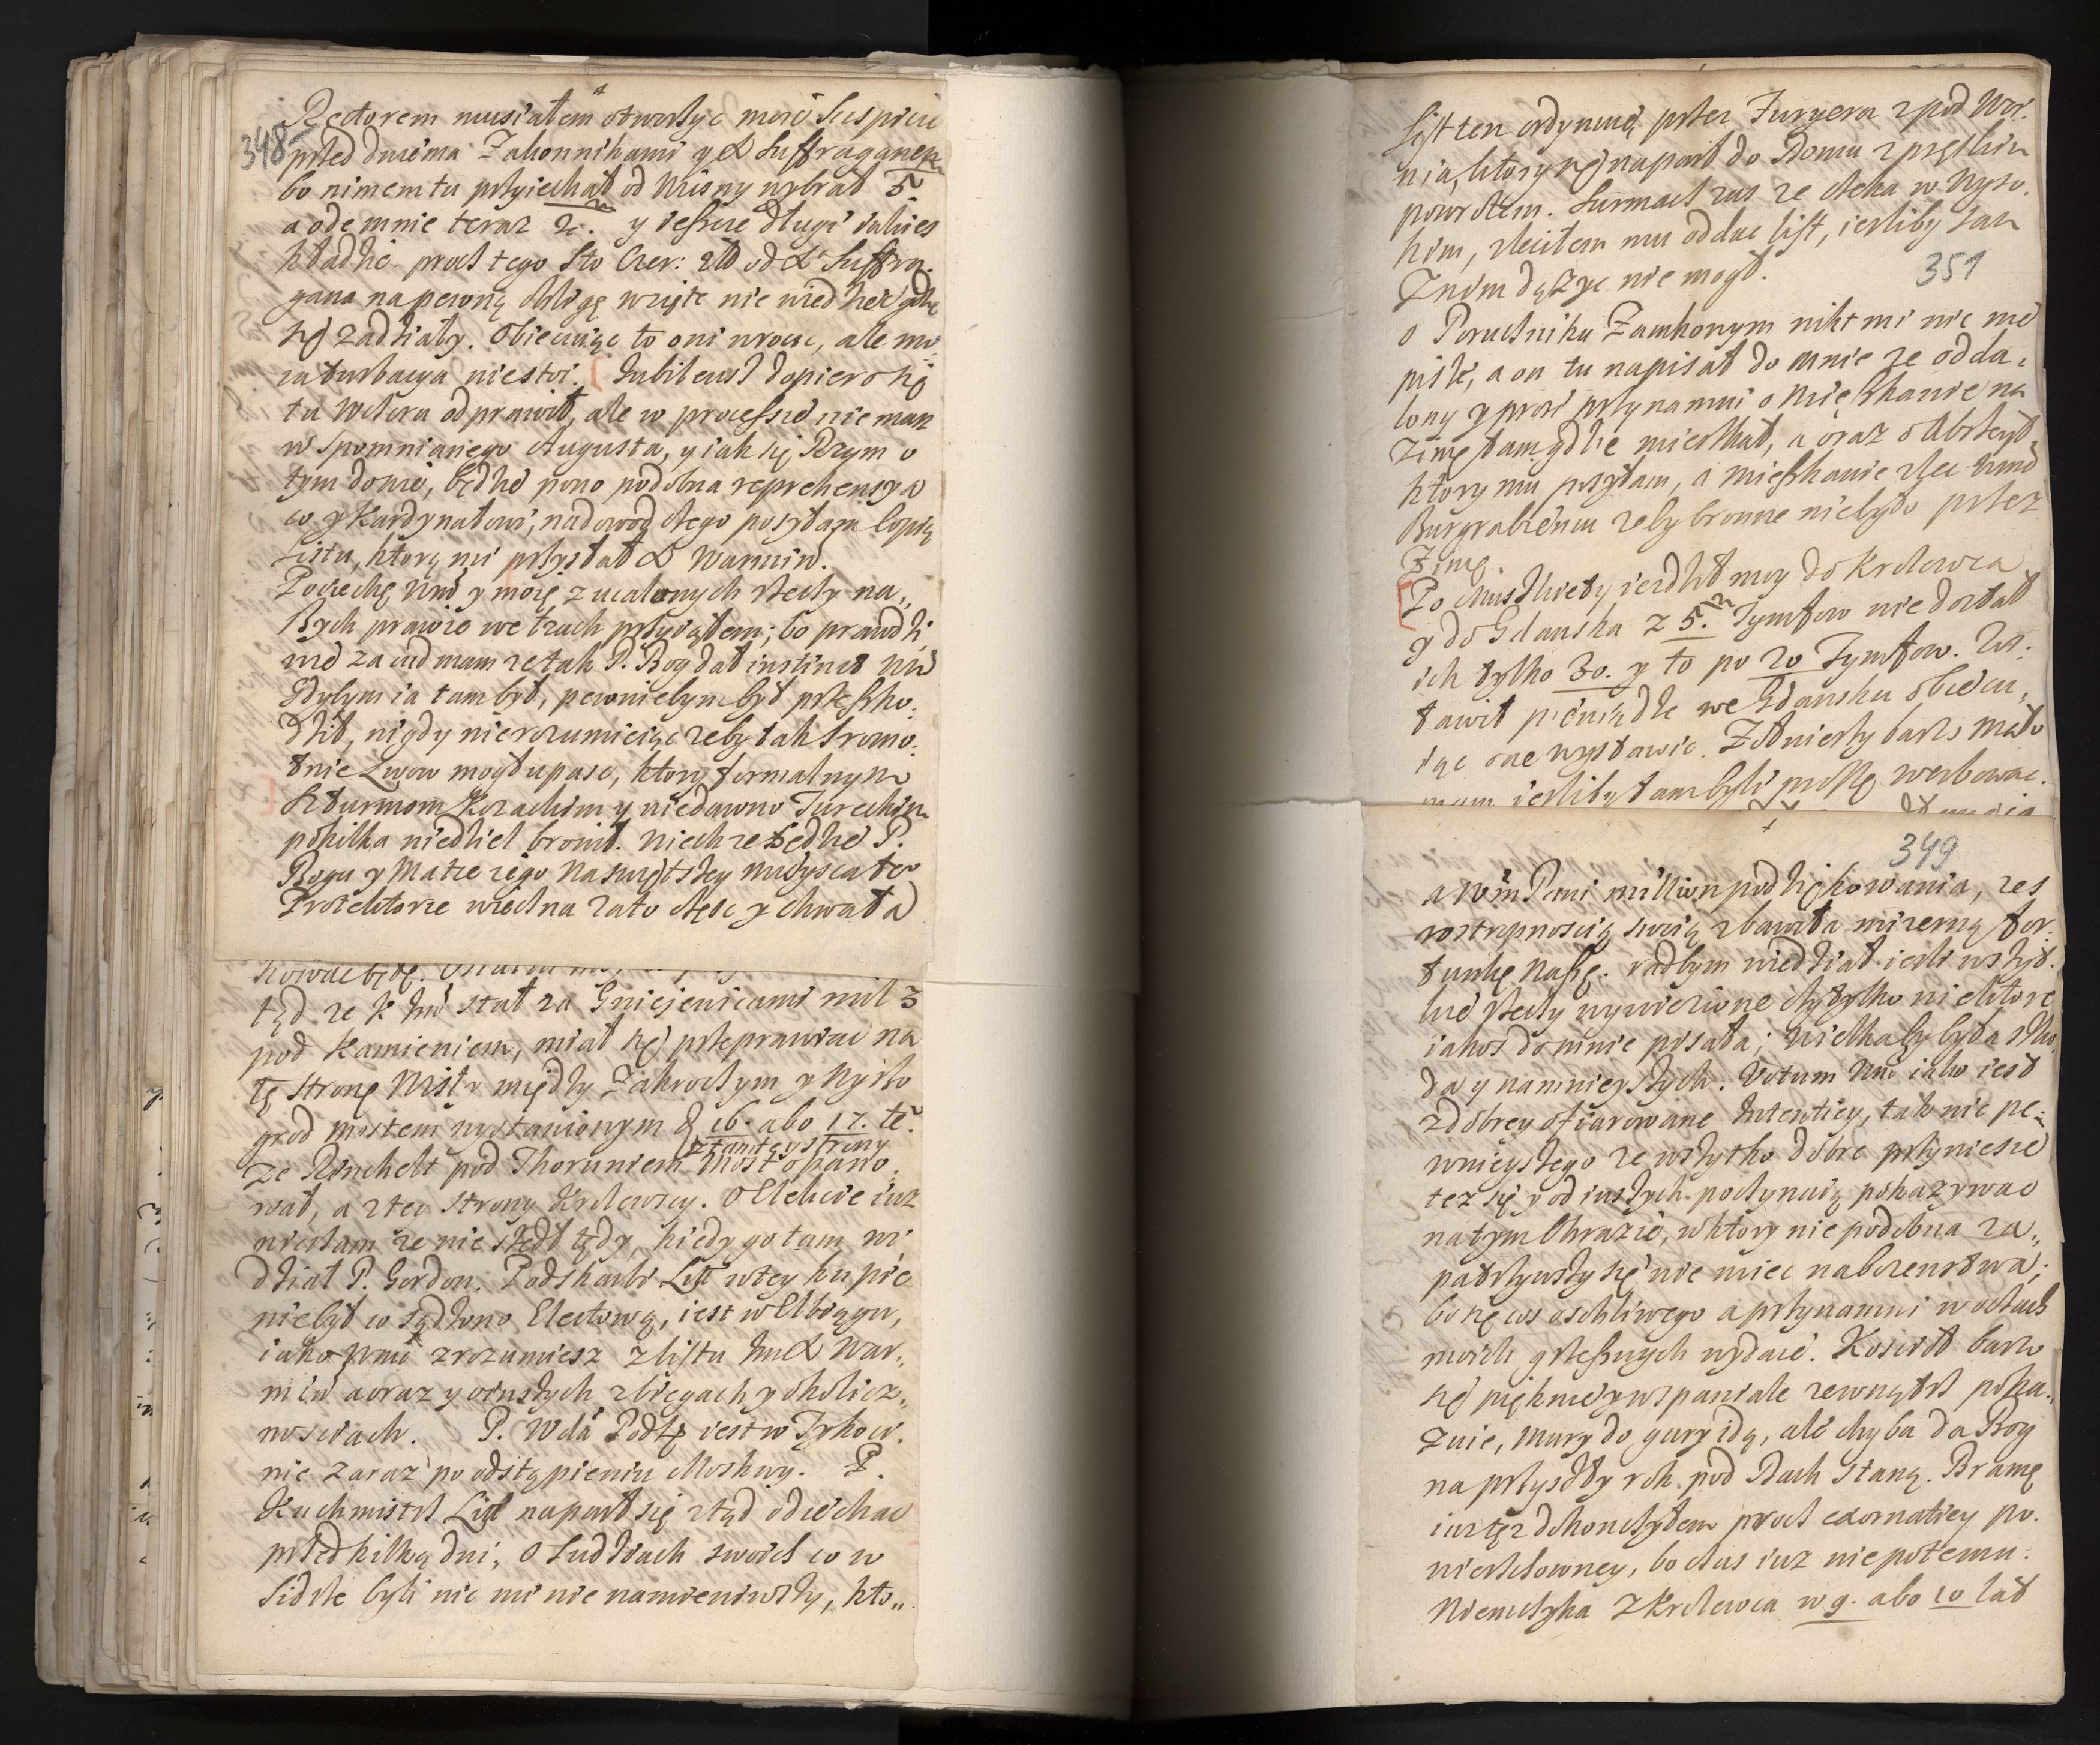 348
Rectorem musiałem otworzyc moie suspicie
przed dwiema Zakonnikami y X Suffraganem
bo nimem tu przyiechał od Misny wybrał 5
a odemnie teraz 2. y ieszcze długi iakies
kładzie procz tego sto Czer: zło od X Suffra,
gana na pewną obligę wzięte nie wiedziec gdzie
się zadziały. Obiecuiąc to oni wrocic, ale mo
ia turbacya niestoi. Iubileusz dopiero się
tu wczora odprawił, ale w processie nie masz
wspomnianego Augusta, y iak się Rzym o
tym dowie, będzie pono podobna reprehensya
co y Kardynałowi, na dowod czego posyłam Copię
Listu, ktorą mi przysłał X Warmin.
Pociechę Wmci y moię z ucalonych rzeczy na,,
szych prawie we łzach przyiąłem; bo prawdzi,
wie za cud mam ze tak P. Bog dał instinct Wmci
Gdybym ia tam był, pewniebym był przeszko,
dził, nigdy nierozumieiąc zeby tak sromo,
tnie Lwow mogł upasc, ktory formalnym
szturmom Kozackim y niedawno Tureckim
po kilka niedziel bronił. Niechze będzie P.
Bogu y Matce iego Naswiętszey Nudyscater
Protektorce wieczna za to częsc y chwała
tąd ze K Jmc stał za Gniejewicami mil 3
pod Kamieniem, miał się przeprawiac na
tę stronę Wisły między Zakroczymem y Wyszo
grod mostem wystawionym d 16. abo 17. te.
z tamtey strony
ze Rinchelt pod Thoruniem Most opano.
wał, a z tey strony Krolewscy. O Elekcie iuz
nieczłam ze nie szedł tędy, kiedy go tam wi,
dział P. Gordon. Podskarbi Lit w tey kupie
nie był co sądzono Electową, iest w Elblągu,
iako Wmc zrozumiesz z listu Jmc X War,,
min a oraz y oinszych zbiegach y okolicz,,
nosciach. P. Wda Podl iest w Tykoci.
nie zaraz po odstąpieniu Moskwy. P.
Kuchmistrz Lit napart się ztąd odiechac
przed kilką dni, o Ludziach swoich co w
Lidzie byli nic mi nie namieniwszy, kto,,
List ten ordynuię przez Furyera zpod War.
nia, ktory się napart do Domu z prętkim
powrotem. Surmacz zas ze czeka w Wyso.
kim, zleciłem mu oddac list, iesliby sam
Znim dązyc nie mogł.
351
o Poruczniku Zamkonym nikt mi nic nie
pisze, a on tu napisał do mnie ze odda,
lony y prosi przynamni o mięszkanie na
Zimę tam gdzie mieszkał, a oraz o Absteyt,
ktory mu posyłam, a mieszkanie zlec Wmc
Burgrabiemu zeby bronne niebyło przez
Zimę.
Po Muszkiety iezdził moy do Krolewca
y do Gdanska z 5. Tymfow nie dostał
ich tylko 30. y to po 20 Tymfow. Zos.
tawił pieniądze we Gdansku obiecu,
iąc one wystawic. Zołnierzy barzo mało
mam iesliby tam byli proszę werbowac.
349
a Wm Pani million podziękowania, zes
rostropnoscią swoią zbawiła mizerną for.
tunkę naszę. radbym wiedział iesli wszyt.
kie rzeczy wywiezione czy tylko niektore
iakos do mnie pisała; Wielkaby była szko,
da y namnieyszych. Votum Wmc iako iest
z dobrey ofiarowane Intenticy, tak nic pe,
wnieyszego ze wszytko dobre przyniesie
tez się y od inszych poczynaią pokazywac
na tym Obrazie, w ktory nie podobna za,,
patrzywszy się nie miec nabozenstwa;
bo się cos oschliwego a przynamni w oczach
moich grzesznych wydaie. Koscioł barzo
się pięknie y wspaniale zewnątrz poka,
zuie, mury do gury idą, ale chyba da Bog
na przyszły rok pod Dach staną. Bramę
iuz tęz dokonczyłem procz exornaticy po.
wierzchowney, bo czas iuz nie potemu.
Niemczyka z Krolewca w 9. abo 10 lat